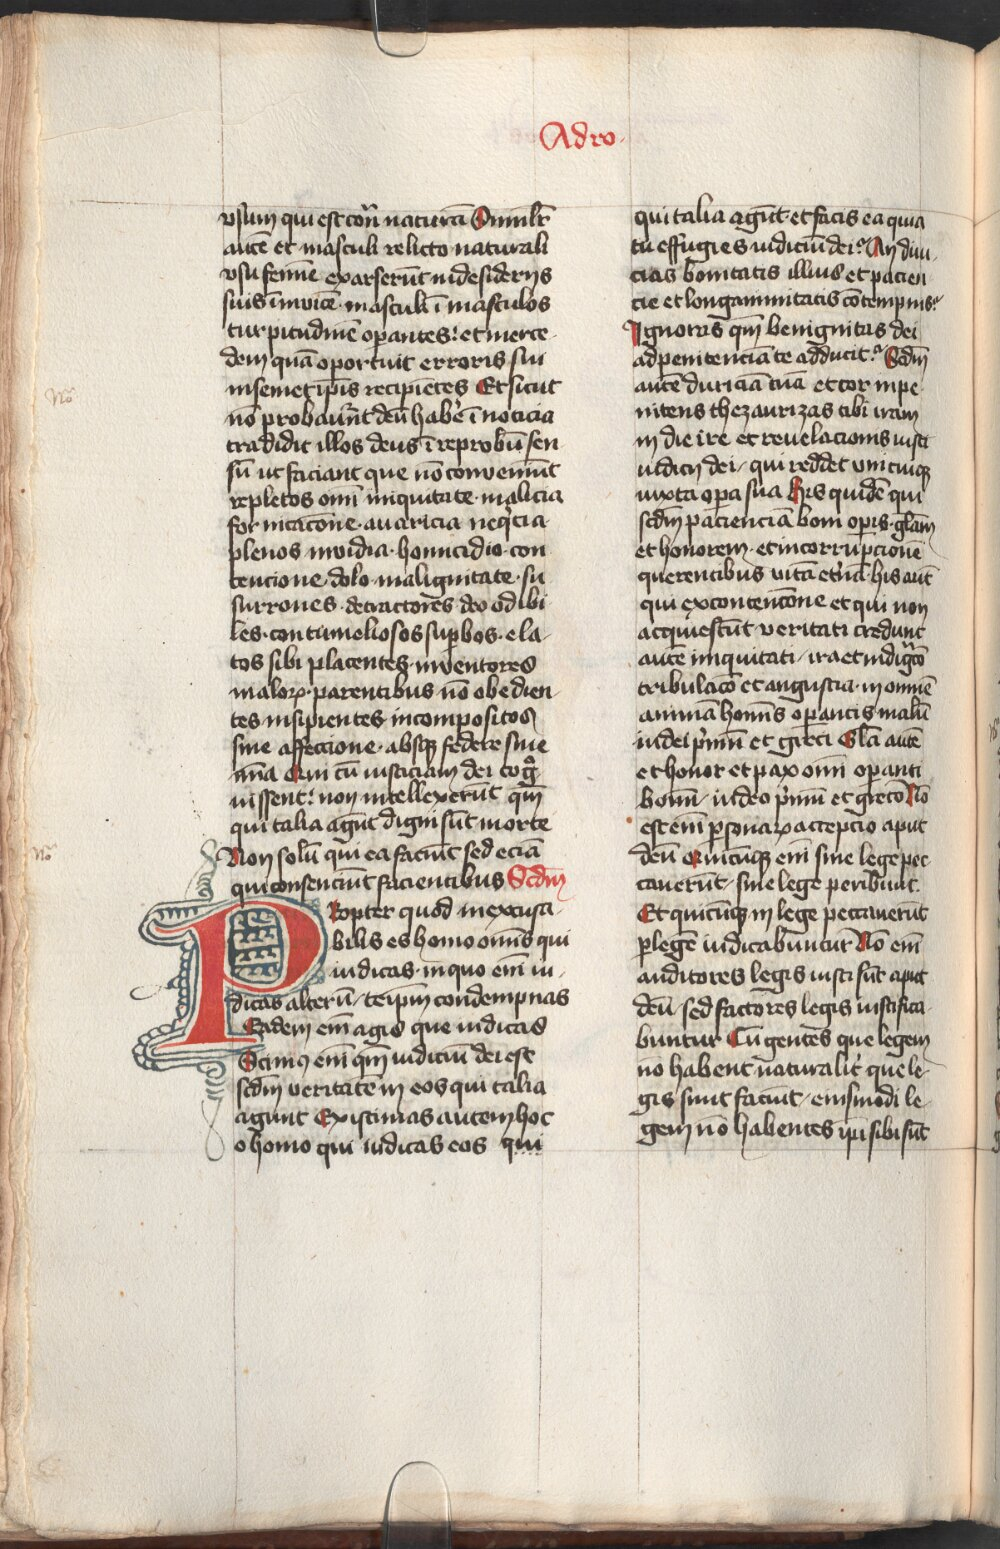 Ad ro
vsum qui est cōn̄ naturā Similr̄
autē et masculi relicto naturali
vsu femīe exarserūt in desiderijs
suis īinuicē masculi ī masculos
turpitudinē oꝑantes: et merce-
dem quā oportuit erroris sui
in semetip̄is recipiētes Et sicut
nō probauer̄ūt deū habe᷑ ī noticia
tradidit illos deus ī reprobū sen-
sū ut faciant que nō conueniūt
repletos omī iniquitate malicia
fornicatōne auaricia neq̇cia
plenos inuidia homicidio con
tencione dolo malignitate su
surrones detractores deo odibi
les contumeliosos suꝑbos ela-
tos sibi placentes inuentores
maloꝝ parentibus nō obedien-
tes insipientes incompositos
sine affeccione absqꝫ federe sine
mīa Qui cū iusticiam dei cog̊
uissent: non intellexerūt qm̄
qui talia agūt digni sūt morte
Non solū qui ea faciūt sed eciā
qui consenciūt facientibus Scd̄m
PRopter quod inexcusa-
bilis es homo om̄is qui
iudicas in quo enī iu-
dicas alterū teip̄m condempnas
Eadem enī agis que iudicas
Scimꝰ enī qm̄ iudiciū dei est
scd̄m veritatē in eos qui talia
agunt Existimas autem hoc
o homo qui iudicas eos qui
qui talia agūt et facis ea quia
tu effugies iudiciū dei? An diui-
cias bonitatis illius et pacien
cie et longanimitatis cōtempnis?
Ignoras qm̄ benignitas dei
ad penitenciā te adducit? Scd̄m
autē duriciā tuā et cor inpe
nitens thezaurizas tibi iram
in die ire et reuelacionis iusti
iudicij dei qui reddet vnicuiqꝫ
iuxta oꝑa sua His quidē qui
scd̄m pacienciā boni oꝑis gl̄am
et honorem et incorrupcionē
querentibus vitā et̓nā his aūt
qui ex contencōne et qui non
acquiescūt veritati credunt
autē iniquitati ira et indigͣcō
tribulacō et angustia in omnē
animā homīs oꝑantis malū
iudei pͥmū et greci Gl̄a autē
et honor et pax omī oꝑanti
bonū iudeo pͥmū et greco Nō
est enī ꝑsonaꝝ accepcio aput
deū Quicūqꝫ enī sine lege pec
cauerūt sine lege peribūnt.
Et quicūqꝫ in lege peccauerūt
ꝑ legē iudicabuntur Nō enī
auditores legis iusti sūt aput
deū sed factores legis iustifica-
buntur Cū gentes que legem
nō habent naturalit᷑ que le-
gis sunt faciūt eiusmodi le-
gem nō habentes ip̄i sibi sūt
Nͦ
Nͦ